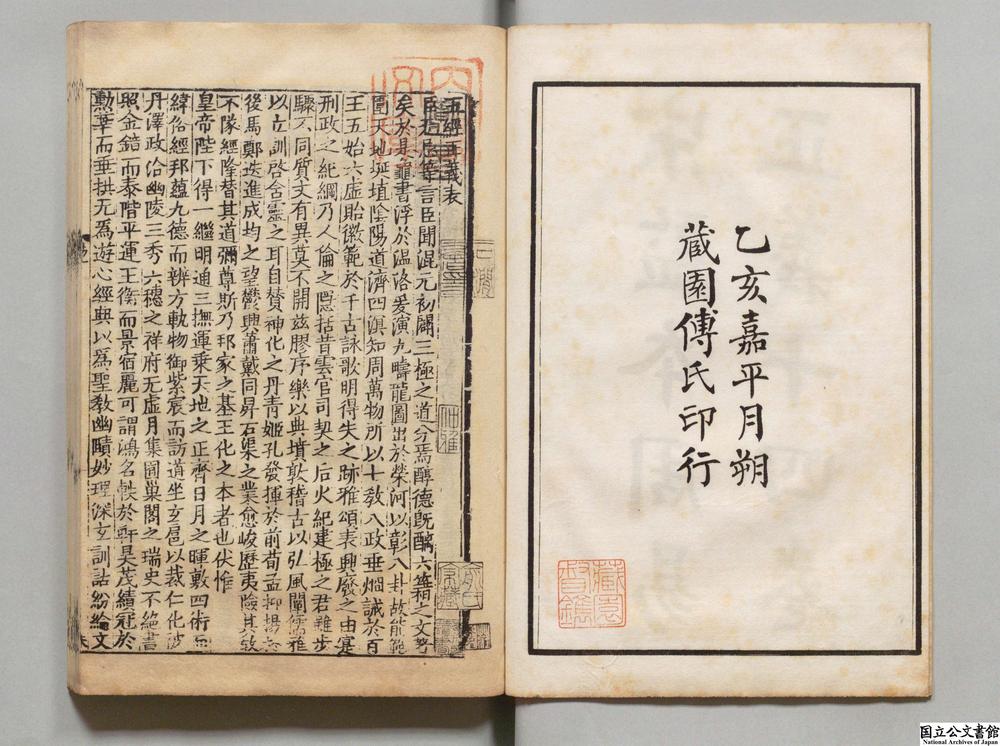 乙亥嘉平月朔
藏園傅氏印行
五經正義表
臣无忌等言臣聞混元初闢三極之道分焉醇德旣醨六籍之文著
矣於是龜書浮於温洛爰演九疇龍圖出於榮河以彰八卦故能範
圍天地埏埴陰陽道濟四溟知周萬物所以七教八政垂烱誡於百
王五始六虛貽徽範於千古詠歌明得失之跡雅頌表興廢之由寔
刑政之紀綱乃人倫之隱括昔雲官司契之后火紀建極之君雖步
驟不同質文有異莫不開兹膠序樂以典墳敦稽古以弘風闡儒雅
以立訓啓含靈之耳目贊神化之丹青姬孔發揮於前荀孟抑揚於
後馬鄭迭進成均之望鬱興蕭戴同昇石渠之業愈峻歷夷險其教
不隊經隆替其道彌尊斯乃邦家之基王化之本者也伏惟
皇帝陛下得一繼明通三撫運乘天地之正齊日月之暉敷四術而
緯俗經邦蘊九德而辨方軌物御紫宸而訪道坐玄扈以裁仁化
丹澤政洽幽陵三秀六穗之祥府无虛月集囿巢閣之瑞史不絶書
照金鏡而泰階平運玉衡而景宿麗可謂鴻名軼於軒昊茂績冠於
勲華而垂拱无爲遊心經典以爲聖教幽賾妙理深玄訓詁紛綸文
国立公文書館
National Archives of Japan